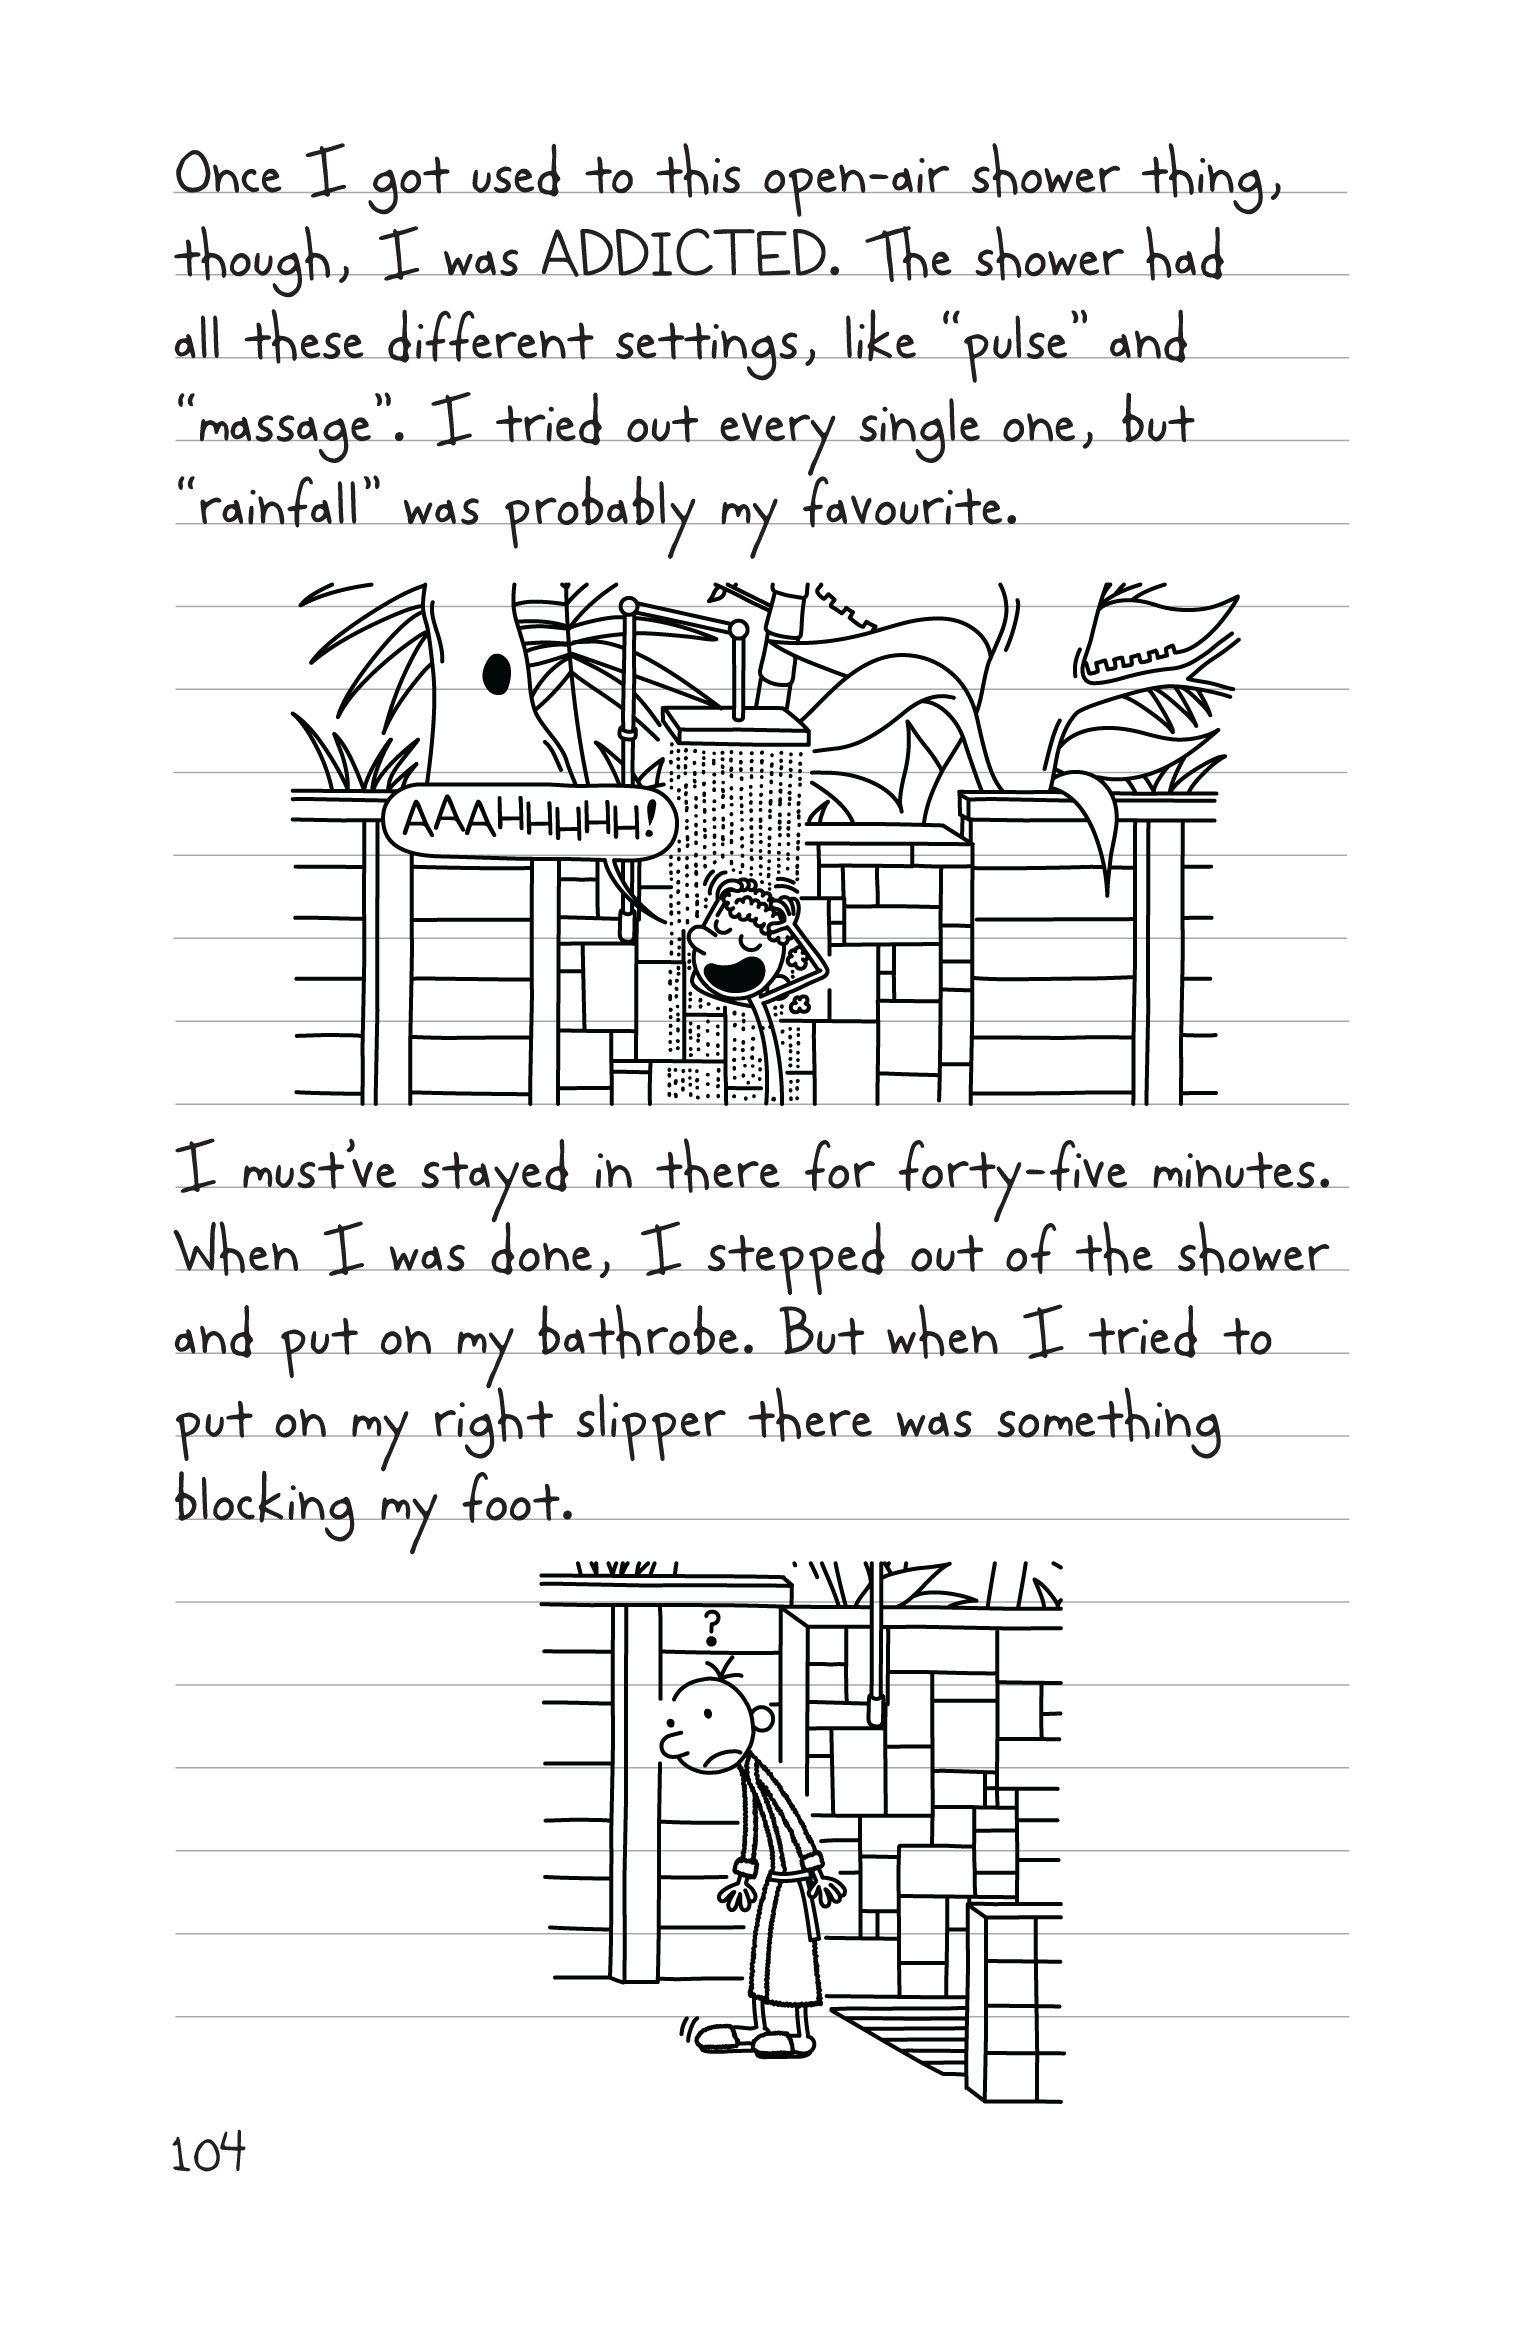 Once I got used to this open-air shower thing,
though, I was ADDICTED. The shower had
all these different settings, like “pulse” and
“massage”. I tried out every single one, but
“rainfall” was probably my favourite.
AAAHHHHH!
I must’ve stayed in there for forty-five minutes.
When I was done, I stepped out of the shower
and put on my bathrobe. But when I tried to
put on my right slipper there was something
blocking my foot.
?
104